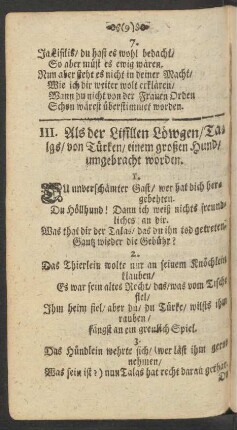 (9)
7.
Ja Lisilis/ du hast es wohl bedacht/
So aber müst es ewig wären.
Nun aber steht es nicht in deiner Macht/
Wie ich dir weiter wolt erklären/
Wann du nicht von der Frauen Orden
Schon wärest überstimmet worden.
III. Als der Lisillen Löwgen/ Ta-
lgs/ von Türken/ einem großen Hund/
umgebracht worden.
1.
DU unverschämter Gast/ wer hat dich her-
gebehten.
Du Höllhund! Dann ich weiß nichts freund-
liches an dir.
Was that dir der Talas/ das du ihn tod getreten/
Gantz wieder die Gebühr?
2.
Das Thierlein wolte nur an seinem Knöchlein
klauben/
Es war sein altes Recht/ das/ was vom Tisch
fiel/
Ihm heim fiel/ aber du/ du Türke/ wilsts ihm
rauben/
fängst an ein greulich Spiel.
3.
Das Hündlein wehrte sich/ (wer läst ihm gern
nehmen/
Was sein ist?) nun Talas hat recht daran gethan.
Du